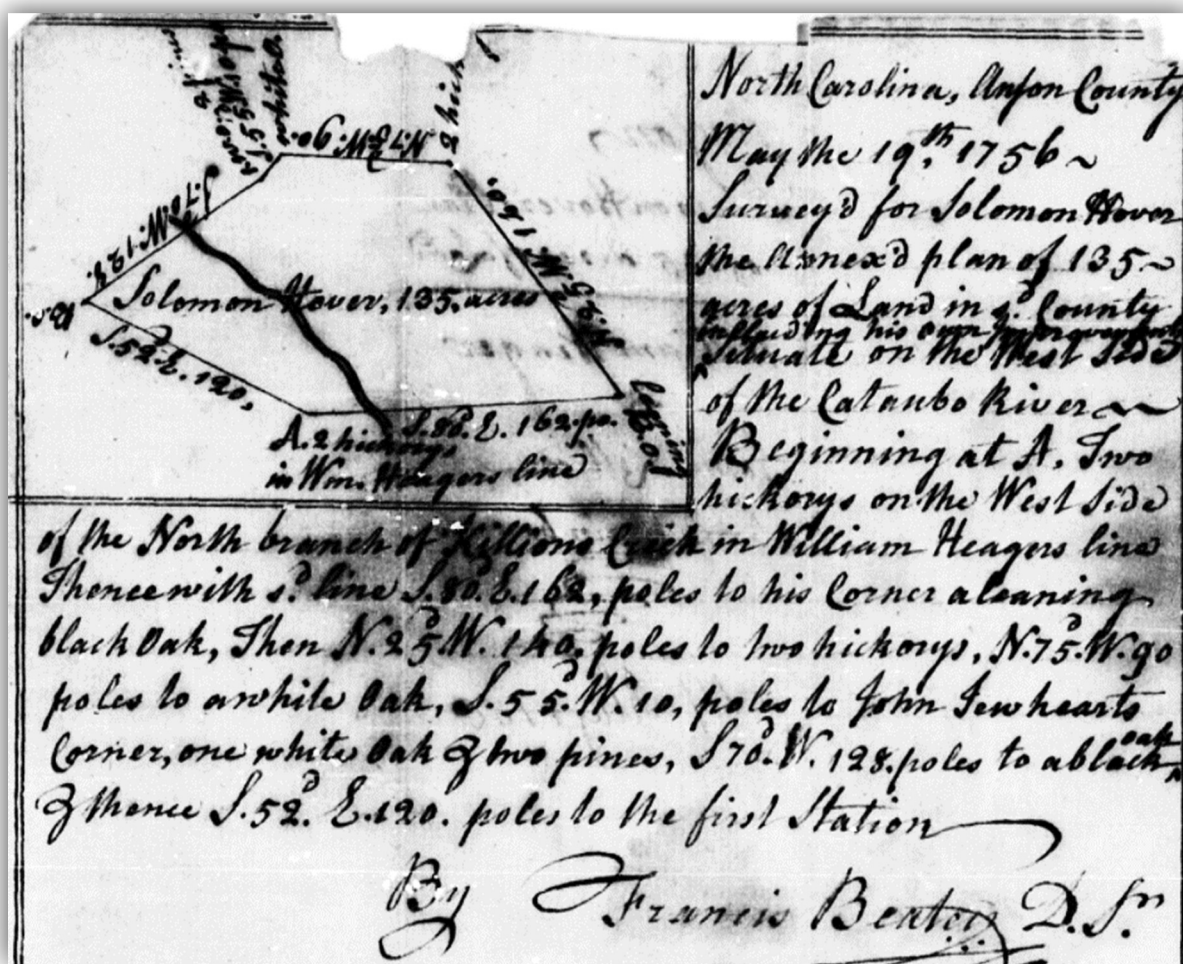 2 pines
S.55.W.10.po
whiteo.
2 hick
N.75.W. 90.
S.70.W. 128.
N.25.W. 140.
Solomon Hover, 135, acres
B.o.
S.52d.E. 120,
S.80d.E. 162.po.
A. 2 hickorys
in Wm. Heagers line
leaning
B.o
North Carolina, Anson County
May the 19th, 1756 ~
Survey'd for Solomon Hover
the Annex'd plan of 135 ~
acres of Land in sd. County
including his own Improvements
Situate on the West Side
of the Cataubo River ~
Beginning at A, Two
hickorys on the West Side
of the North branch of Killions Creek in William Heagers line
Thence with sd. line S.80d.E.162, poles to his Corner a leaning
black Oak, Then N.25d.W. 140, poles to two hickorys, N.75d.W.90
poles to a white Oak, S.55d.W.10, poles to John Tewhearts
Corner, one white Oak & two pines, S70d.W. 128.poles to a black oak
& thence S.52d. E.120. poles to the first Station
By Francis Beatey D. Sr.